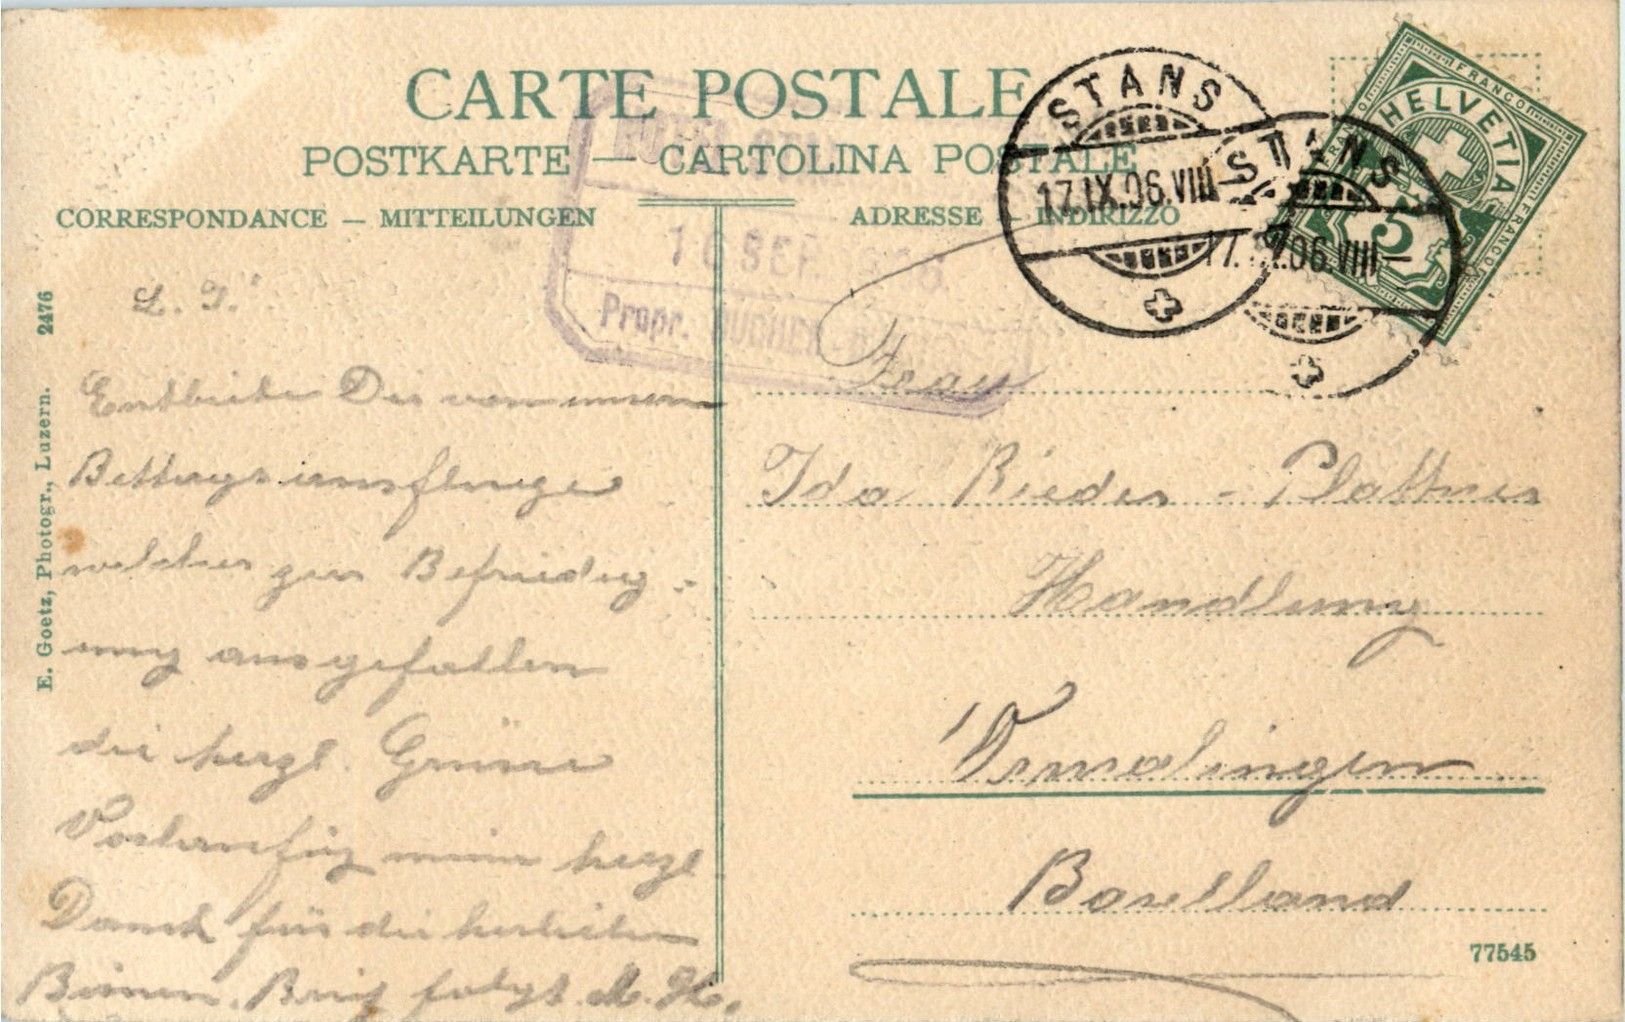 CARTE POSTALE
POSTKARTE — CARTOLINA POSTALE
CORRESPONDANCE — MITTEILUNGEN
ADRESSE — INDIRIZZO
HOTEL
16 SEP.
Propr.
STANS
17.IX.06.VIII–
STANS
17. 06.VIII–
FRANCO
HELVETIA
FRANCO
5
L. I.
Entbiete Dir von unserm
Bettagsausfluge
welcher zur Befriedig-
ung ausgefallen
die herzl. Grüsse
Vorläufig mein herzl
Dank für die herlichen
Birnen. Brief folgt. M. H.
Frau
Ida Rieder-Plattner
Handlung
Ormalingen
Baselland
77545
E. Goetz, Photogr., Luzern. 2476